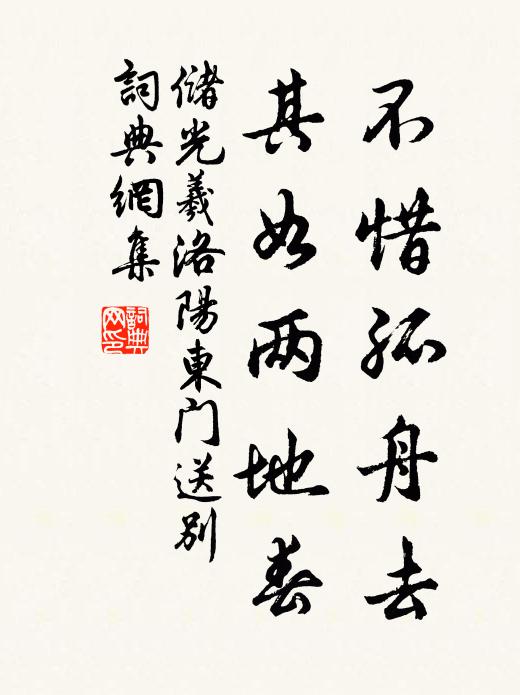 不惜孤舟去
其如两地春
儲光羲洛陽東门送别
詞典網集
詞典网印